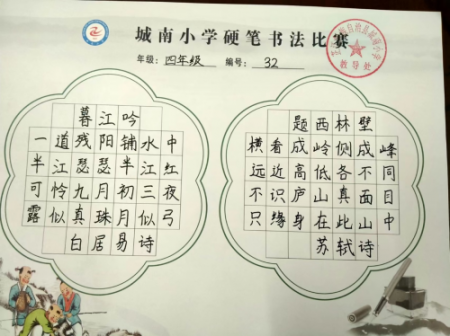 城南小学硬笔书法比赛
年级:四年级 编号:32
教导处
暮江吟
一道残阳铺水中
半江瑟瑟半江红
可怜九月初三夜
露似真珠月似弓
白居易诗
题西林壁
横看成岭侧成峰
远近高低各不同
不识庐山真面目
只缘身在此山中
苏轼诗